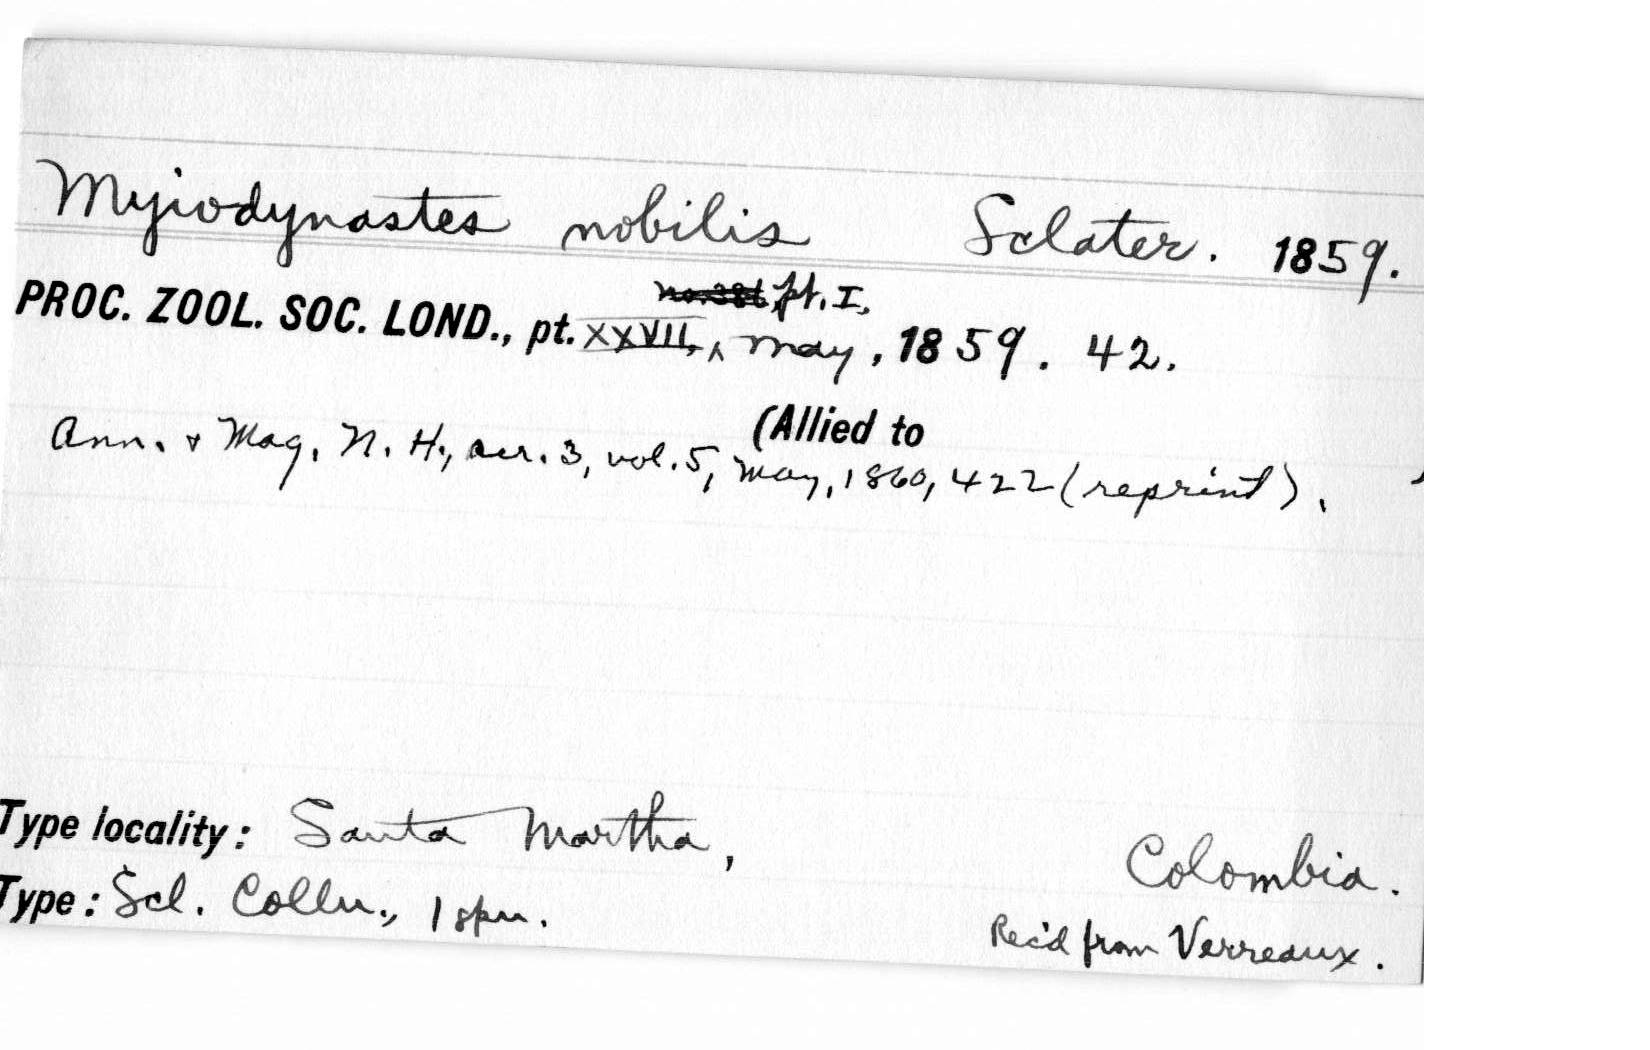 Myiodynastes nobilis Sclater. 1859.
pt. I,
PROC. ZOOL. SOC. LOND., pt. XXVII, ^ May, 1859. 42.
(Allied to
Ann. & Mag. N. H., ser. 3, vol. 5, May, 1860, 422 (reprint).
Type locality: Santa Martha, Colombia.
Type: Scl. Colln., 1 spm.
Rec'd from Verreaux.